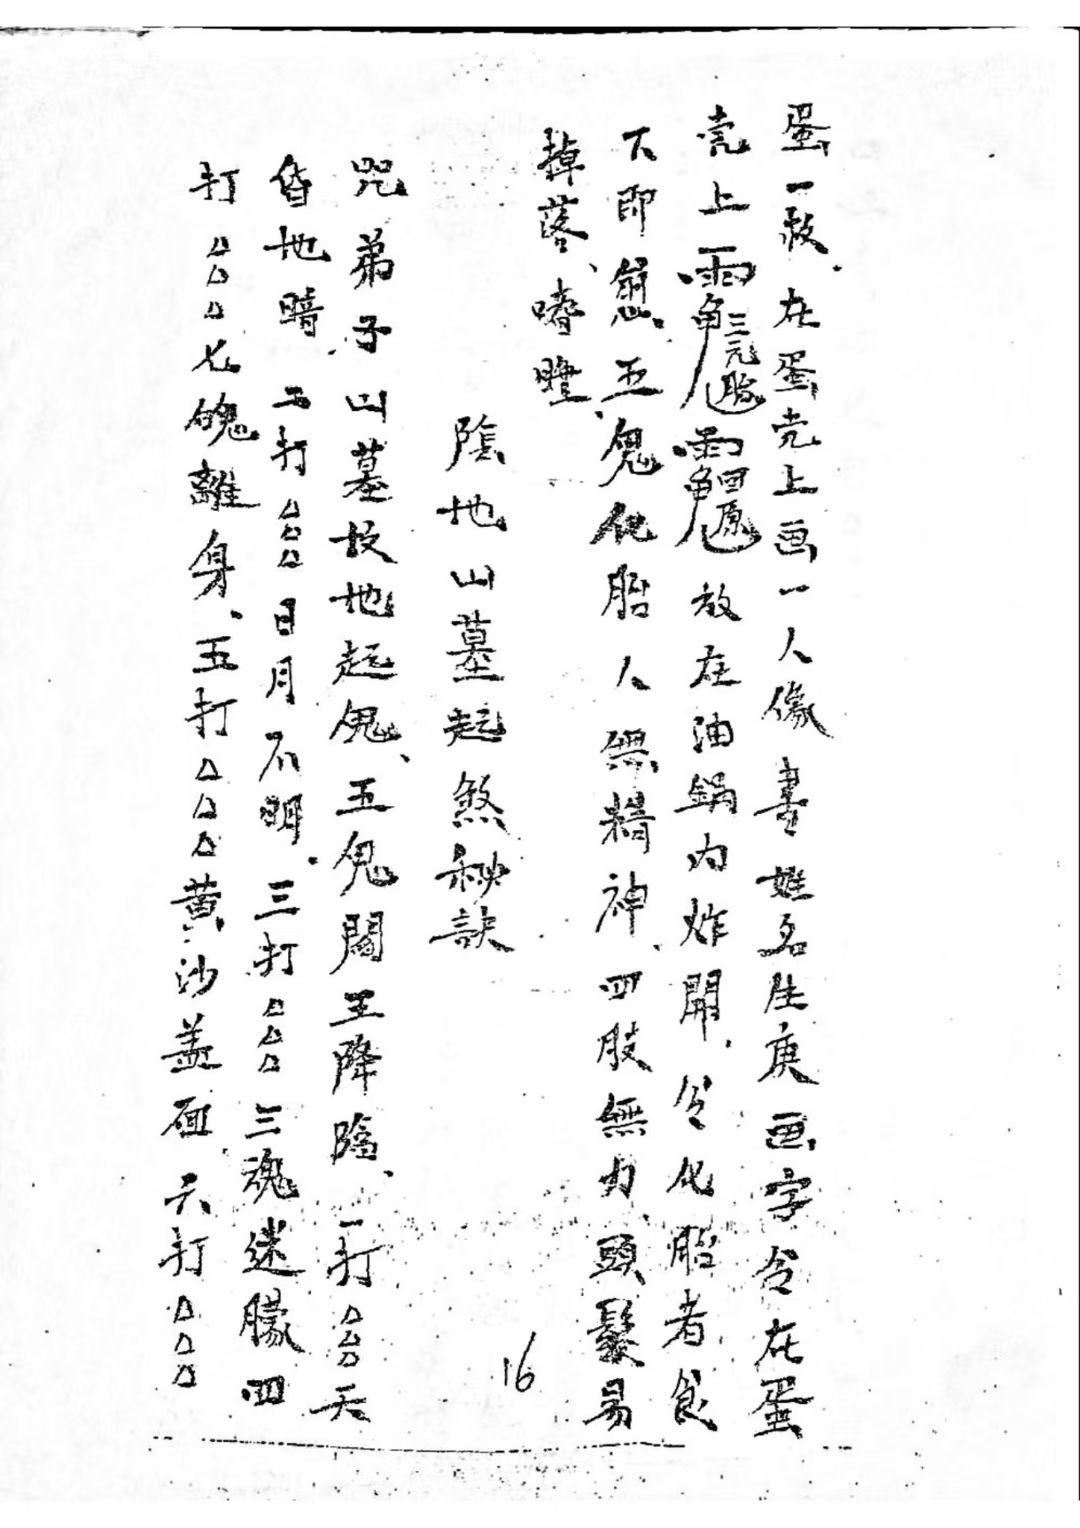 蛋一枚.在蛋壳上画一人像書姓名生庚画字令在蛋
壳上三元胎四原放在油鍋内炸開.令化胎者食
下即崩.五鬼化胎人無精神.四肢無力.頭髮易
掉落、嗜睡.
陰地山墓起煞秘訣
咒弟子山墓坟地起鬼、五鬼閻王降臨、一打△△△天
昏地暗.二打△△△日月不明.三打△△△三魂迷朦四
打△△△七魄離身、五打△△△黄沙盖面六打△△△
16